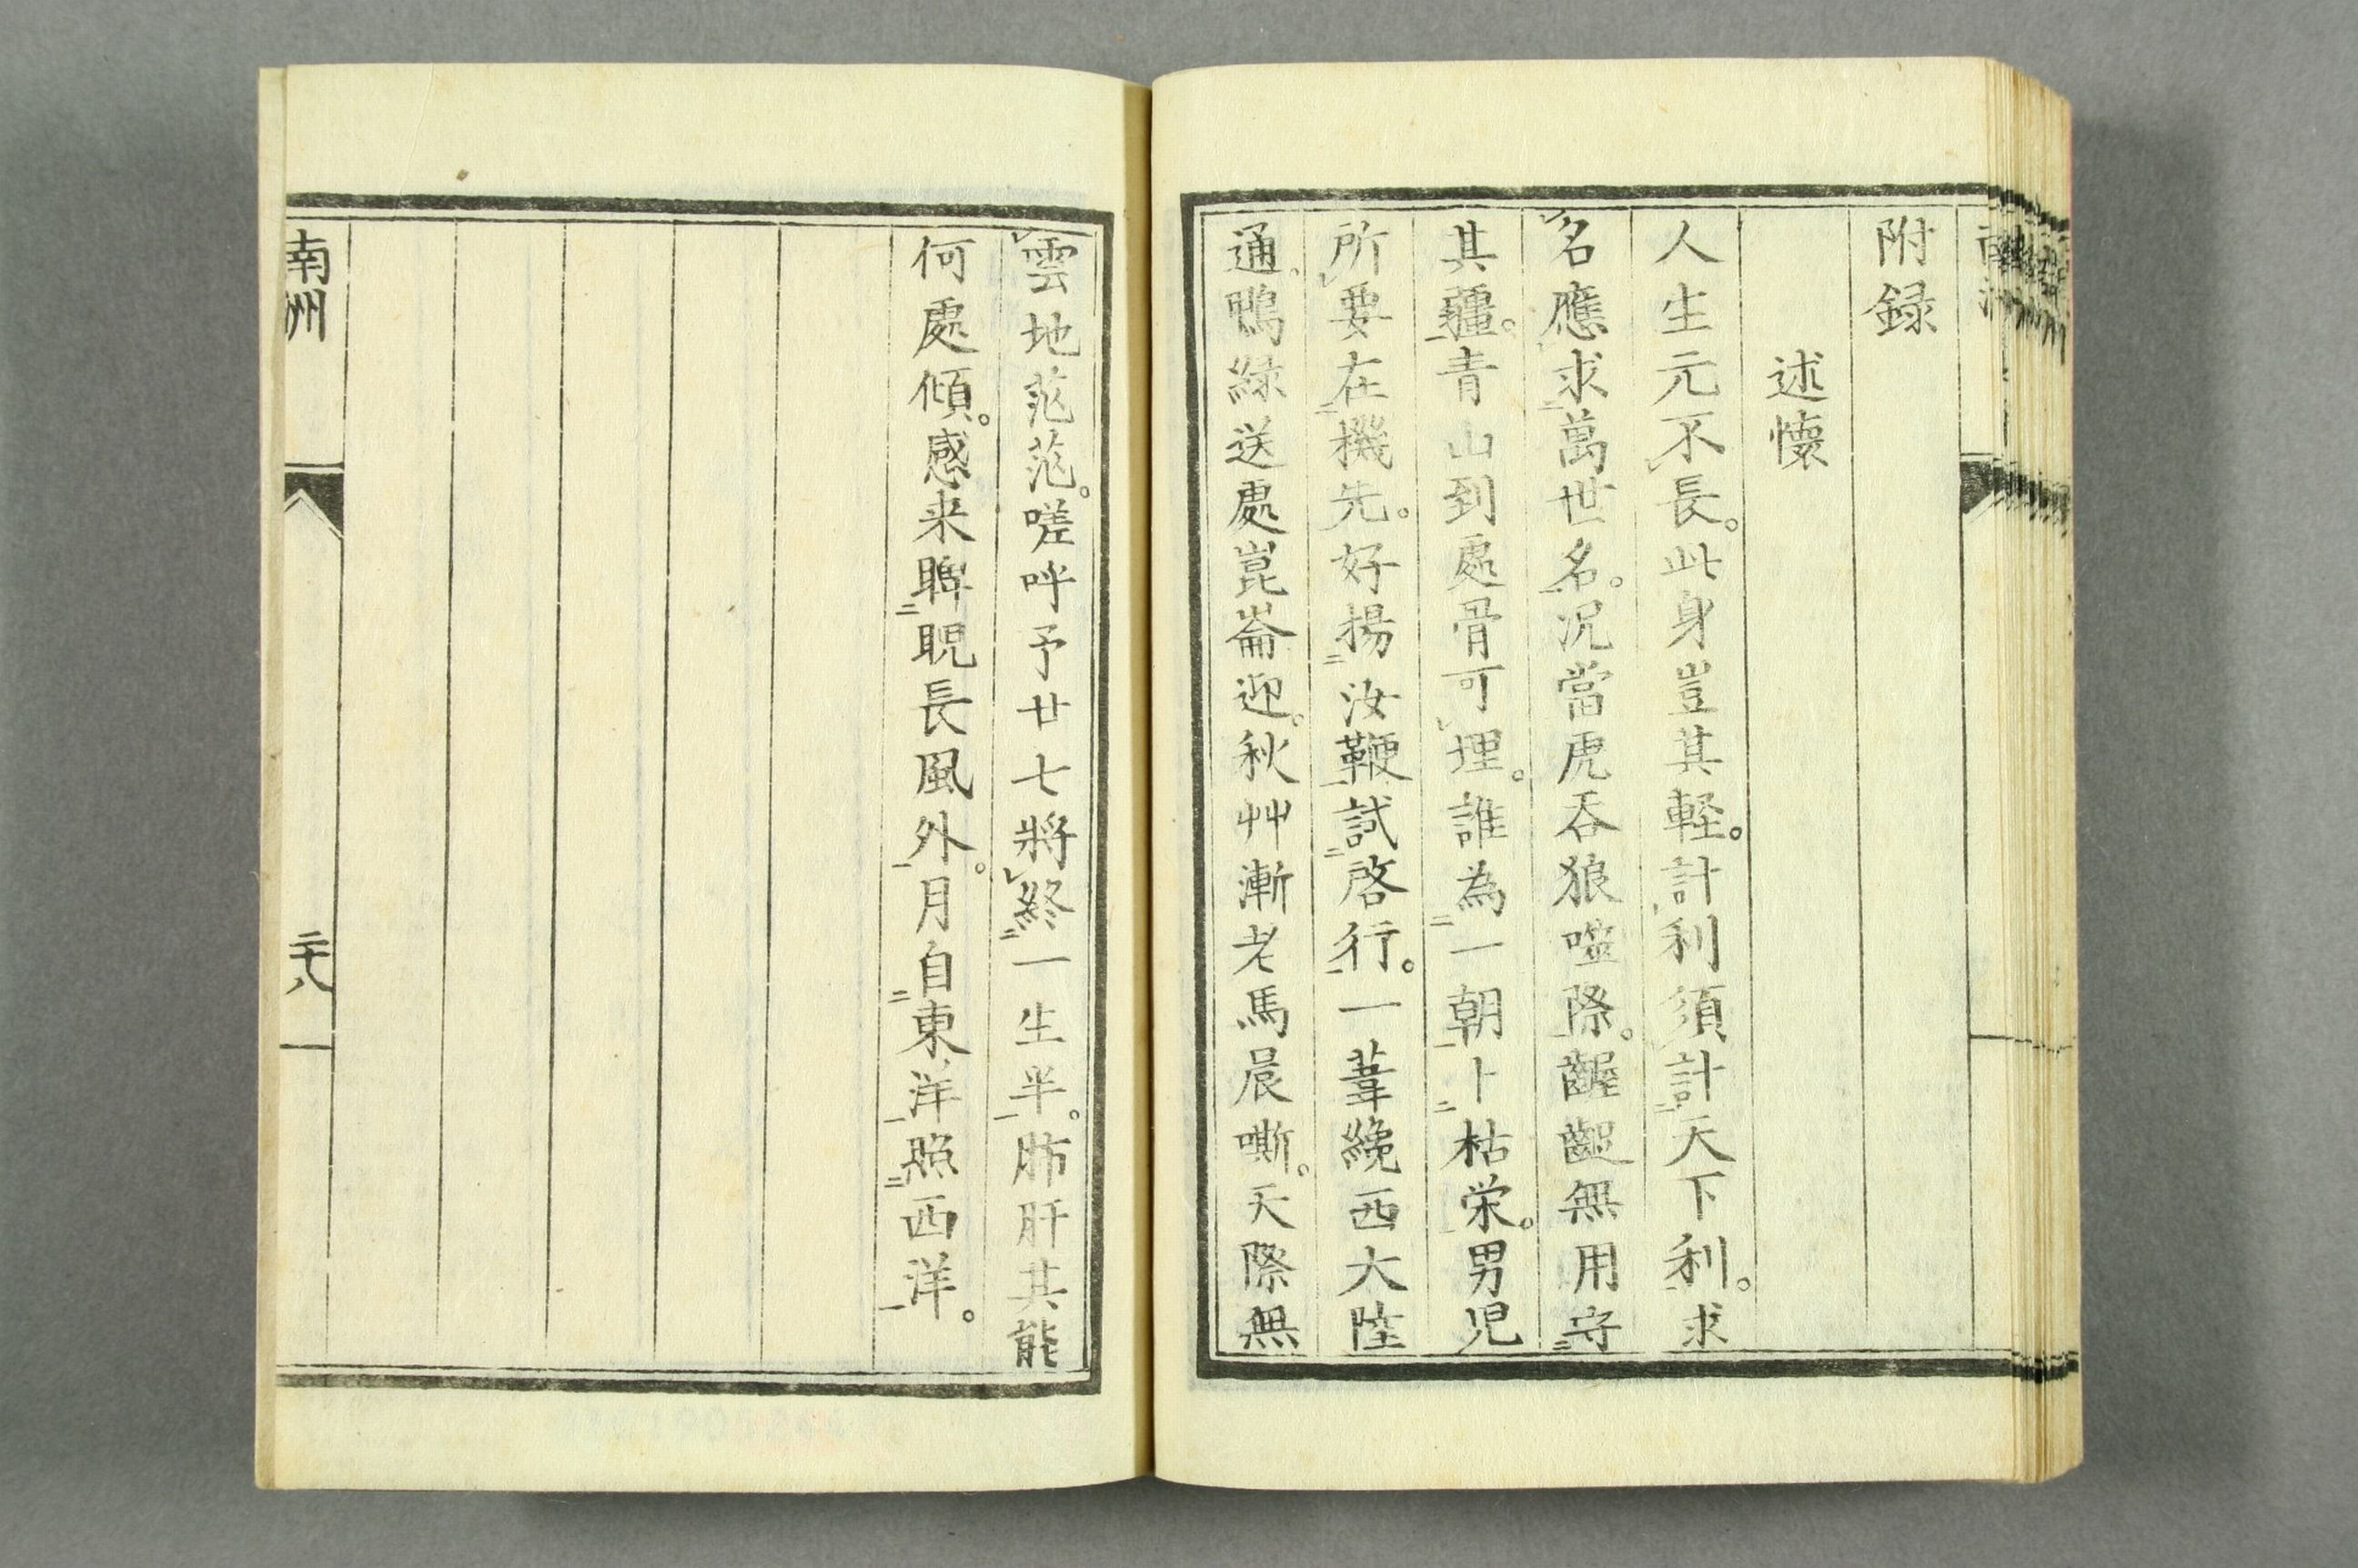 附録
述懐
人生元不長。此身豈其軽。計利須計天下利。求
名應求萬世名。況當虎呑狼噬際。齷齪無用守
其疆。青山到處骨可埋。誰為一朝卜枯栄。男児
所要在機先。好揚汝鞭試啓行。一葦纔西大陸
通。鴨緑送處崑崙迎。秋艸漸老馬晨嘶。天際無
雲地茫茫。嗟呼予廿七將終一生半。肺肝其能
何處傾。感来睥睨長風外。月自東洋照西洋。
南洲
二十八